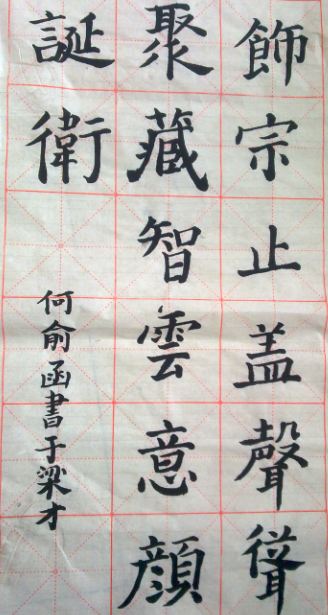 飾宗止盖聲聳
聚藏智雲意顔
誕衛
何俞函書于梁才